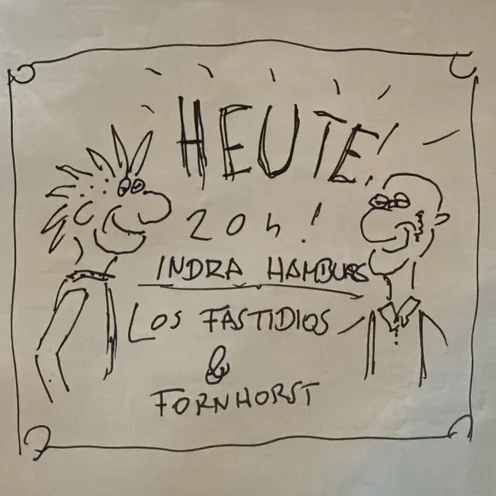 HEUTE!
20h!
INDRA HAMBURG
LOS FASTIDIOS
&
FORNHORST